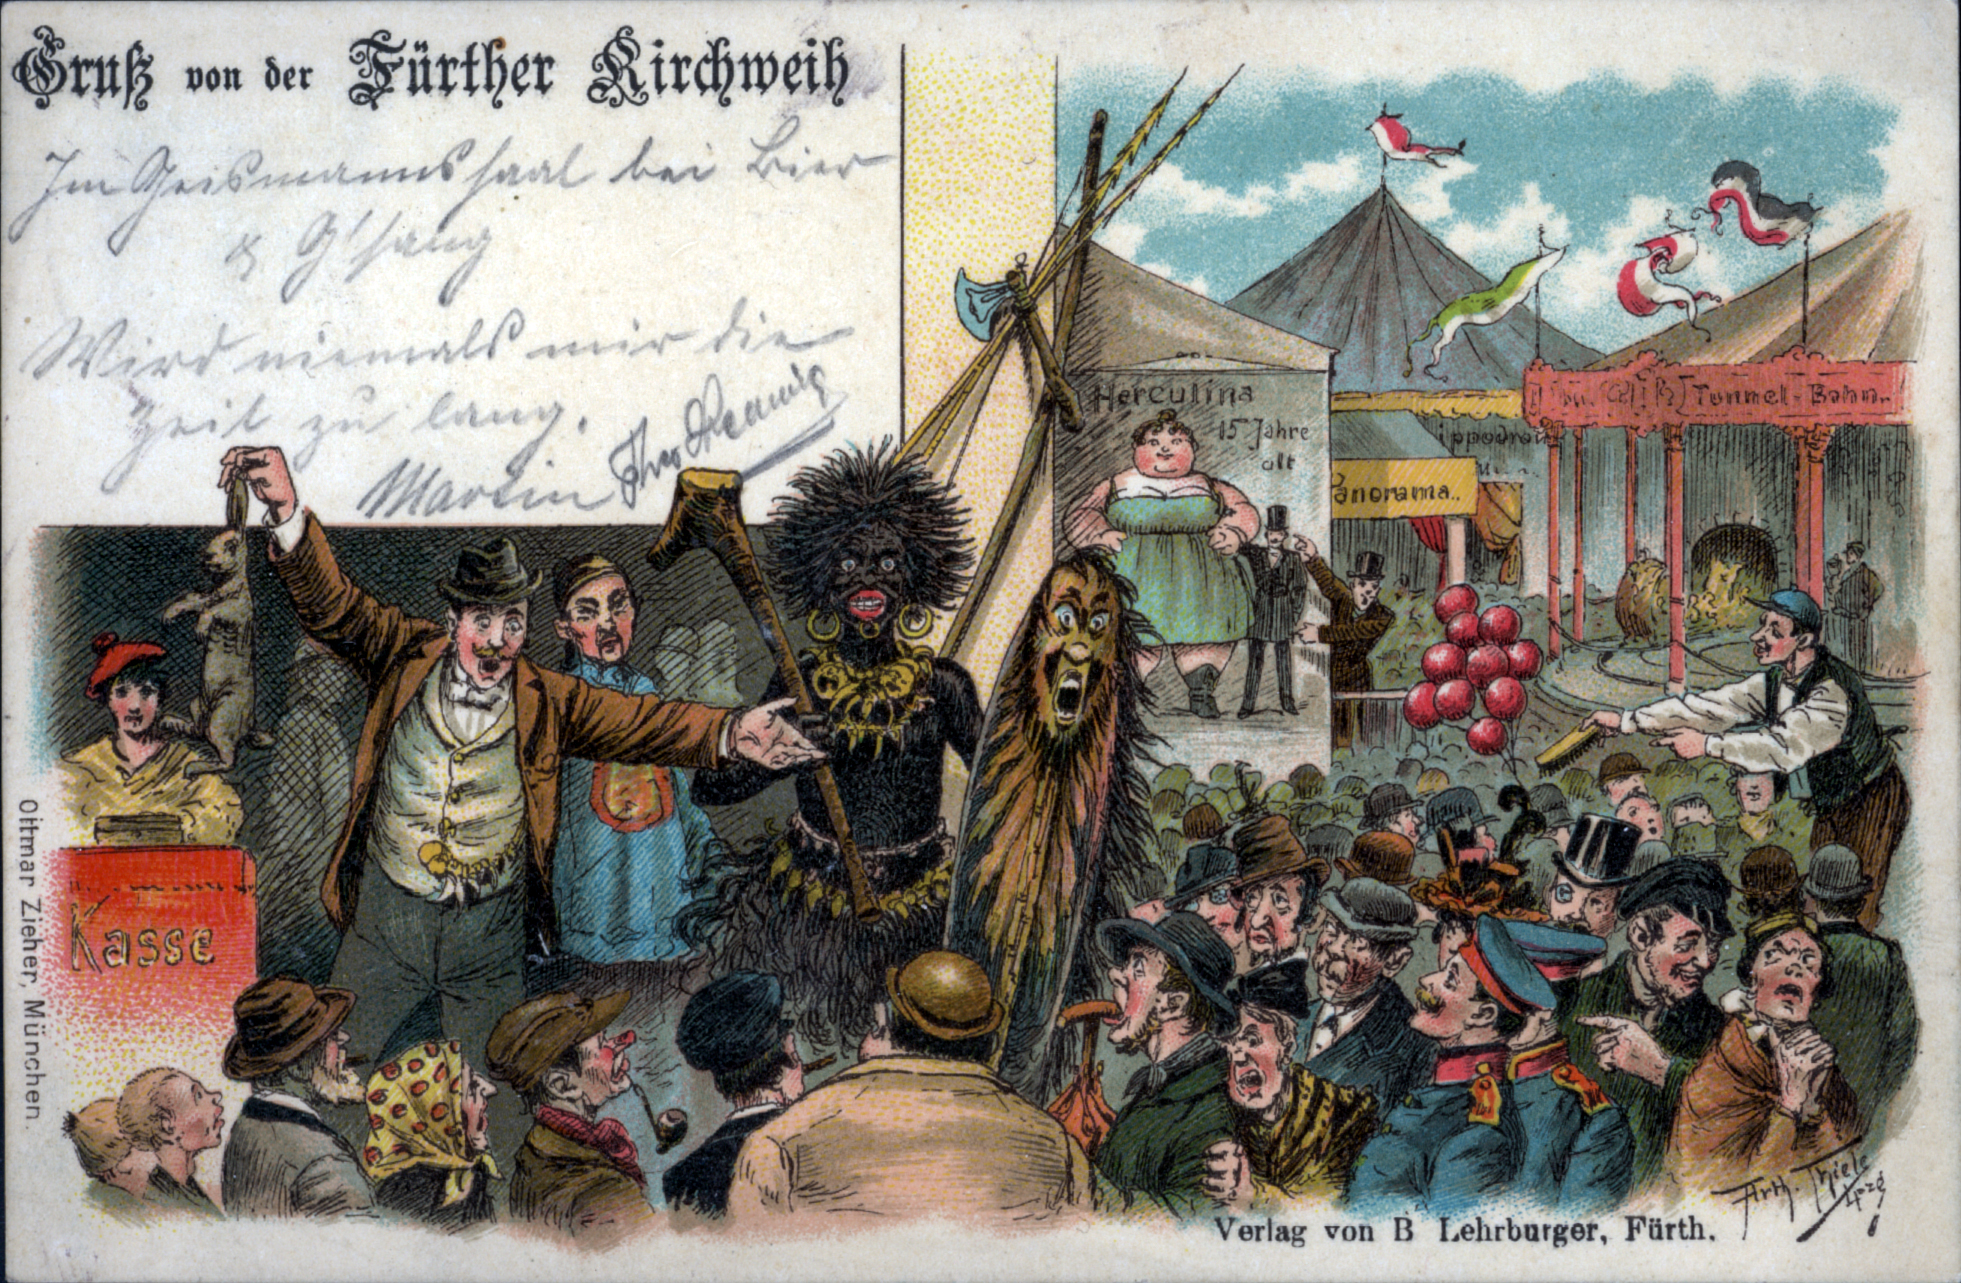 Gruß von der Fürther Kirchweih
Im Geismannssaal bei Bier
& G'sang
Wird niemals mir die
Zeit zu lang.
Martin
Herculina
15 Jahre
alt
ippodrom
Panorama..
Tunnel-Bahn.
Kasse
Ottmar Zieher, München.
Arth. Thiele
Lpzg
Verlag von B Lehrburger, Fürth.